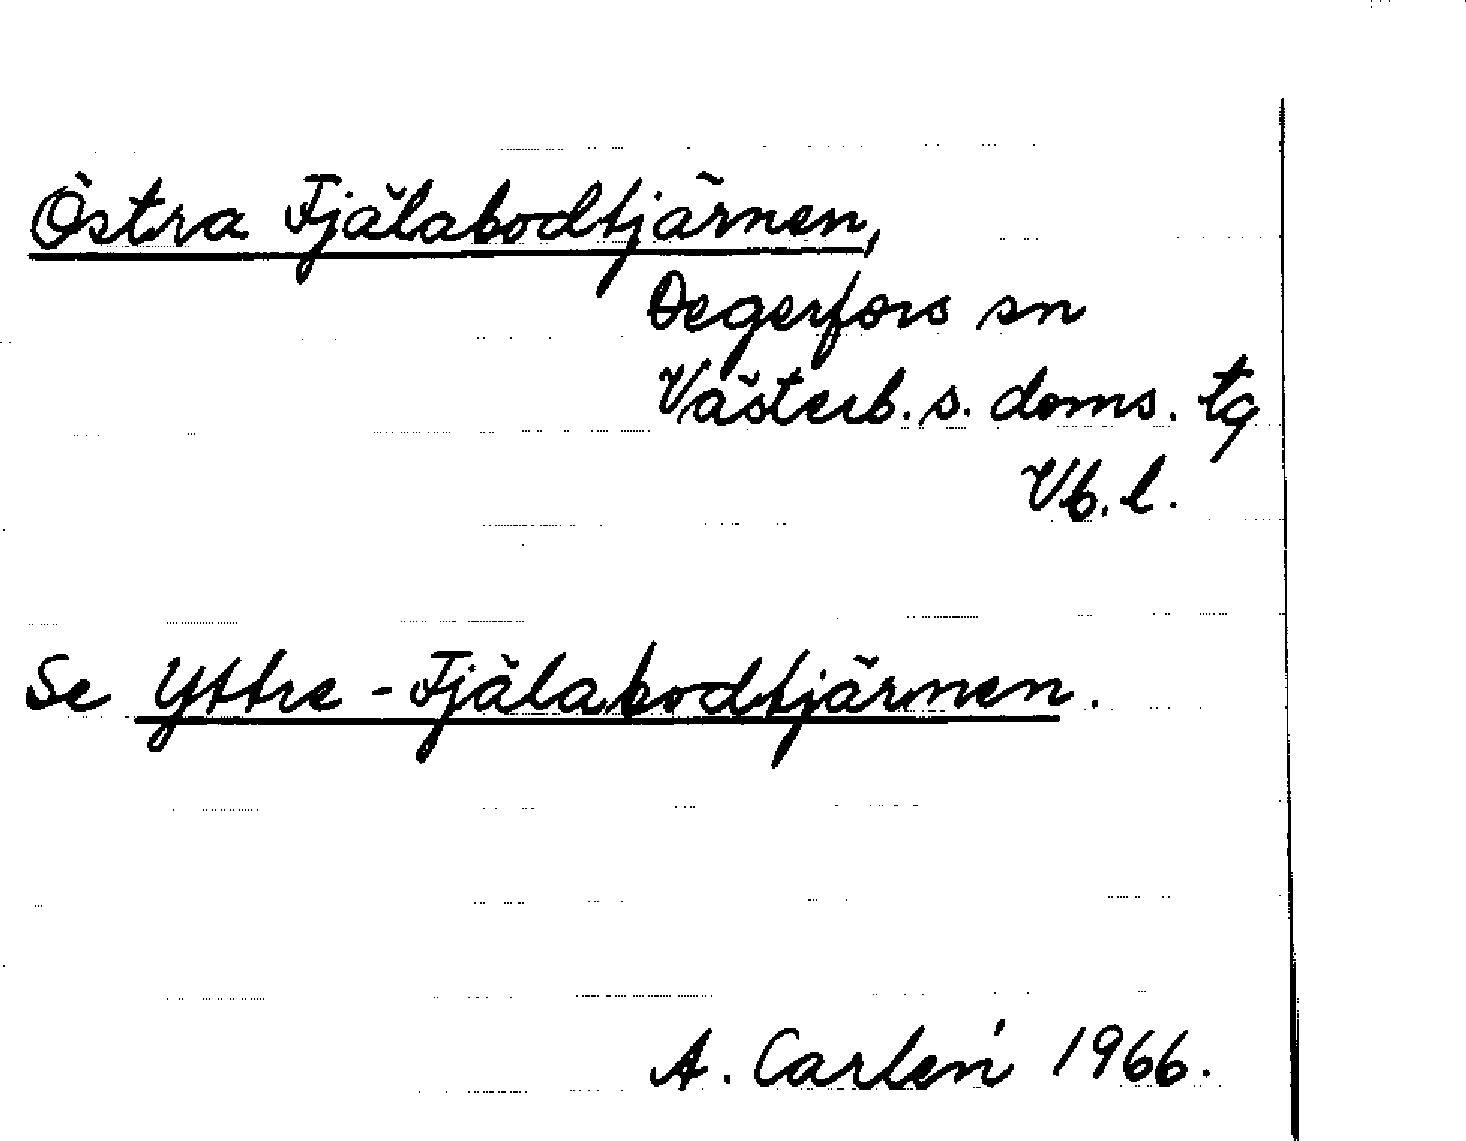 Östra Fjälabodtjärnen,
Degerfors sn
Västerb. s. doms. tg
Vb. l.
Se Yttre-Fjälabodtjärnen.
A. Carlén 1966.